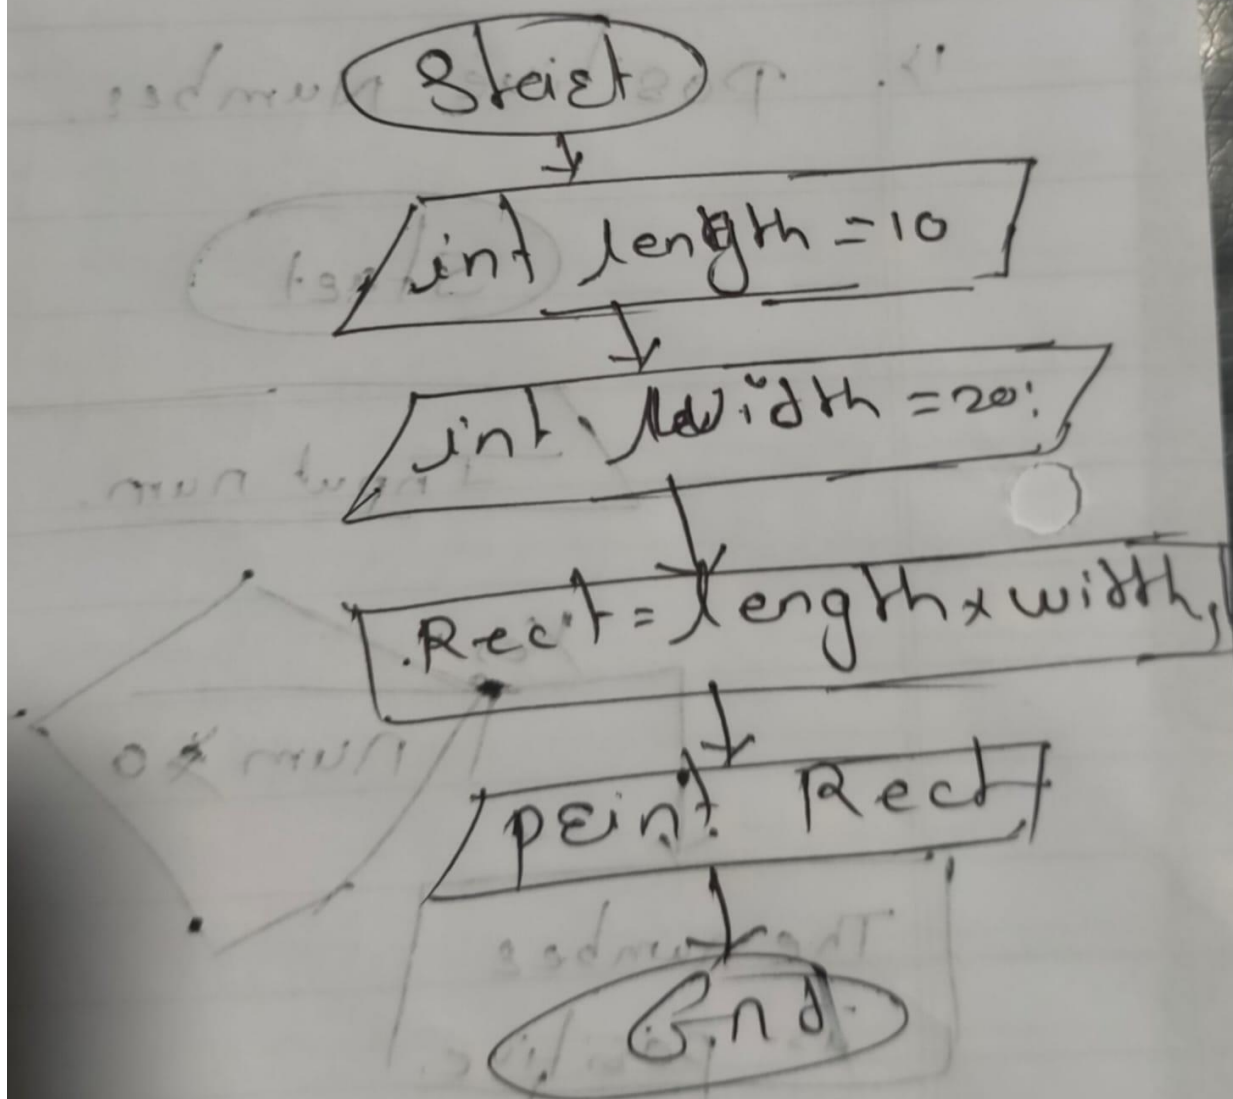 Start
int length = 10
int width = 20;
Rect = length x width,
print Rect
End